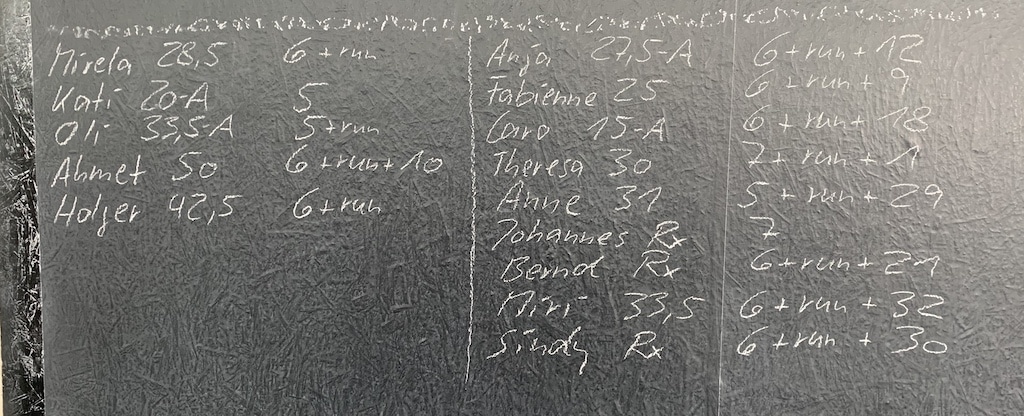 Mirela 28,5 6+run
Kati 20-A 5
Oli 33,5-A 5+run
Ahmet 50 6+run+10
Holger 42,5 6+run
Anja 27,5-A 6+run+12
Fabienne 25 6+run+9
Caro 15-A 6+run+18
Theresa 30 7+run+1
Anne 31 5+run+29
Johannes Rx 7
Bernd Rx 6+run+21
Miri 33,5 6+run+32
Sindy Rx 6+run+30